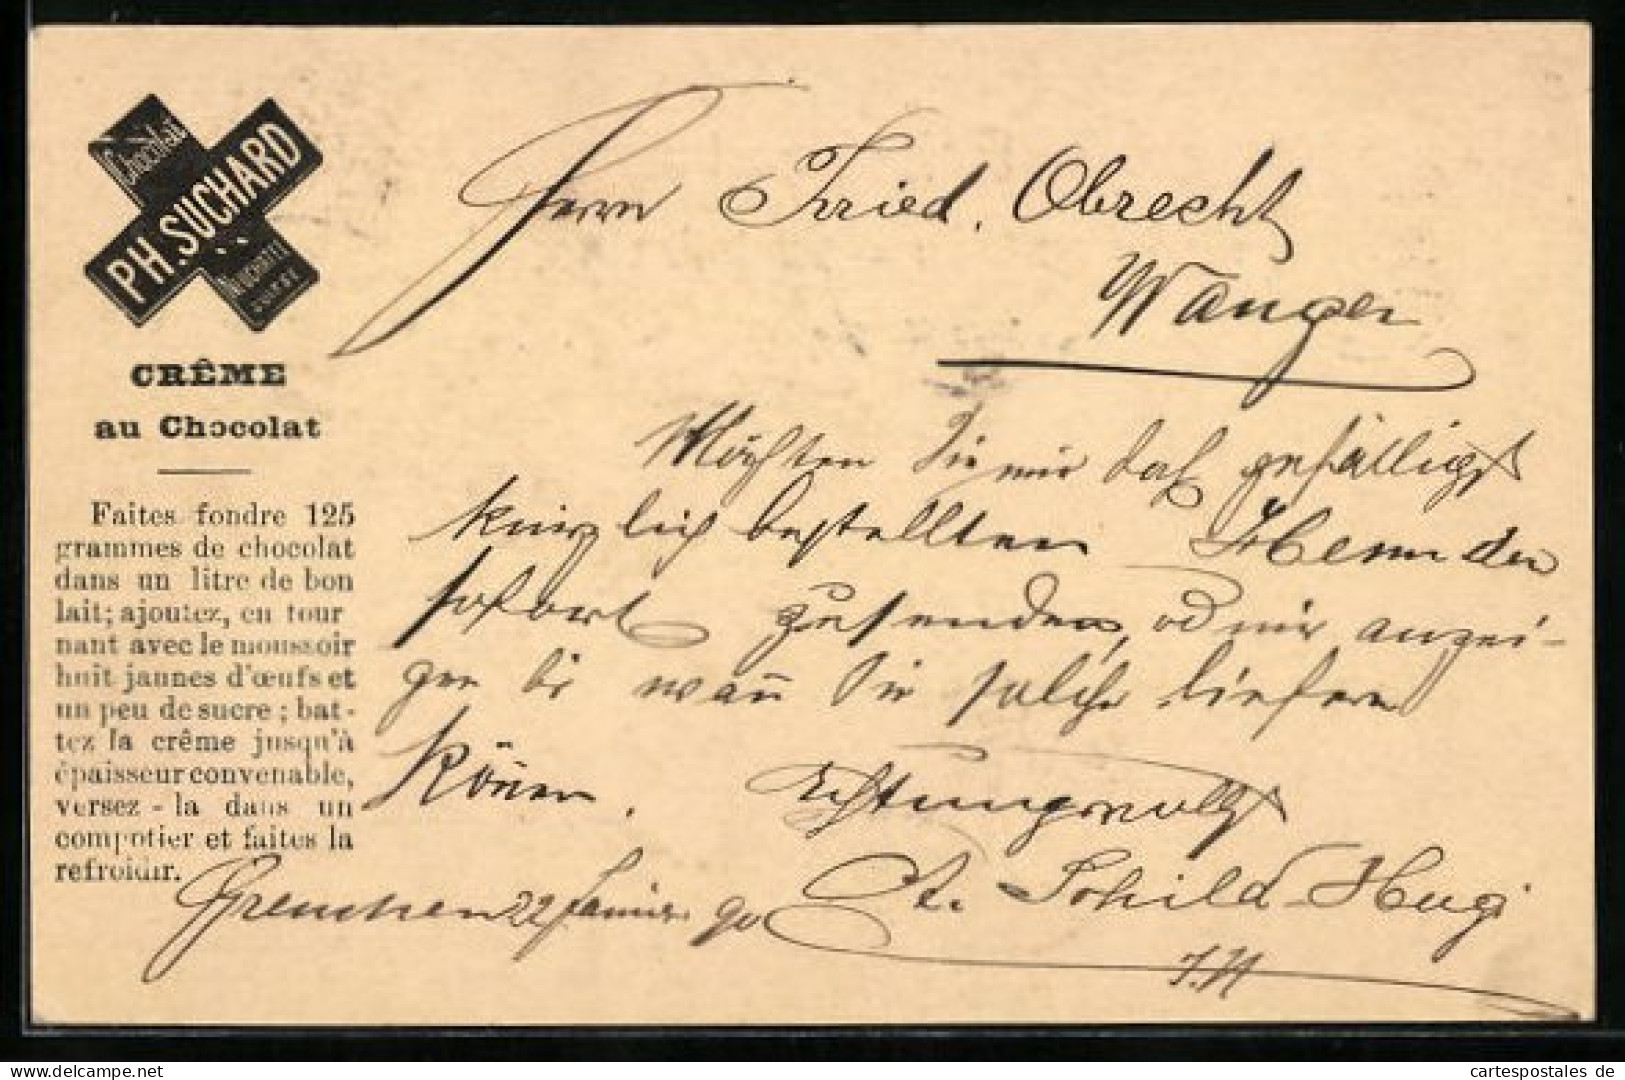 Chocolat
PH. SUCHARD
NEUCHATEL
SUISSE
CRÊME
au Chocolat
Faites fondre 125
grammes de chocolat
dans un litre de bon
lait; ajoutez, en tour
nant avec le moussoir
huit jaunes d'œufs et
un peu de sucre ; bat-
tez la crême jusqu'à
épaisseur convenable,
versez - la dans un
compotier et faites la
refroidir.
Herrn Fried. Obrecht
Wangen
Möchten Sie mir doch gefälligst
kürzlich bestellten Hemden
sofort zusenden, od mir anzei-
gen bis wañ Sie solche liefern
köñen.
Achtungsvollst
A. Schild-Hugi
Grenchen 22 Januar 90
cartespostales de